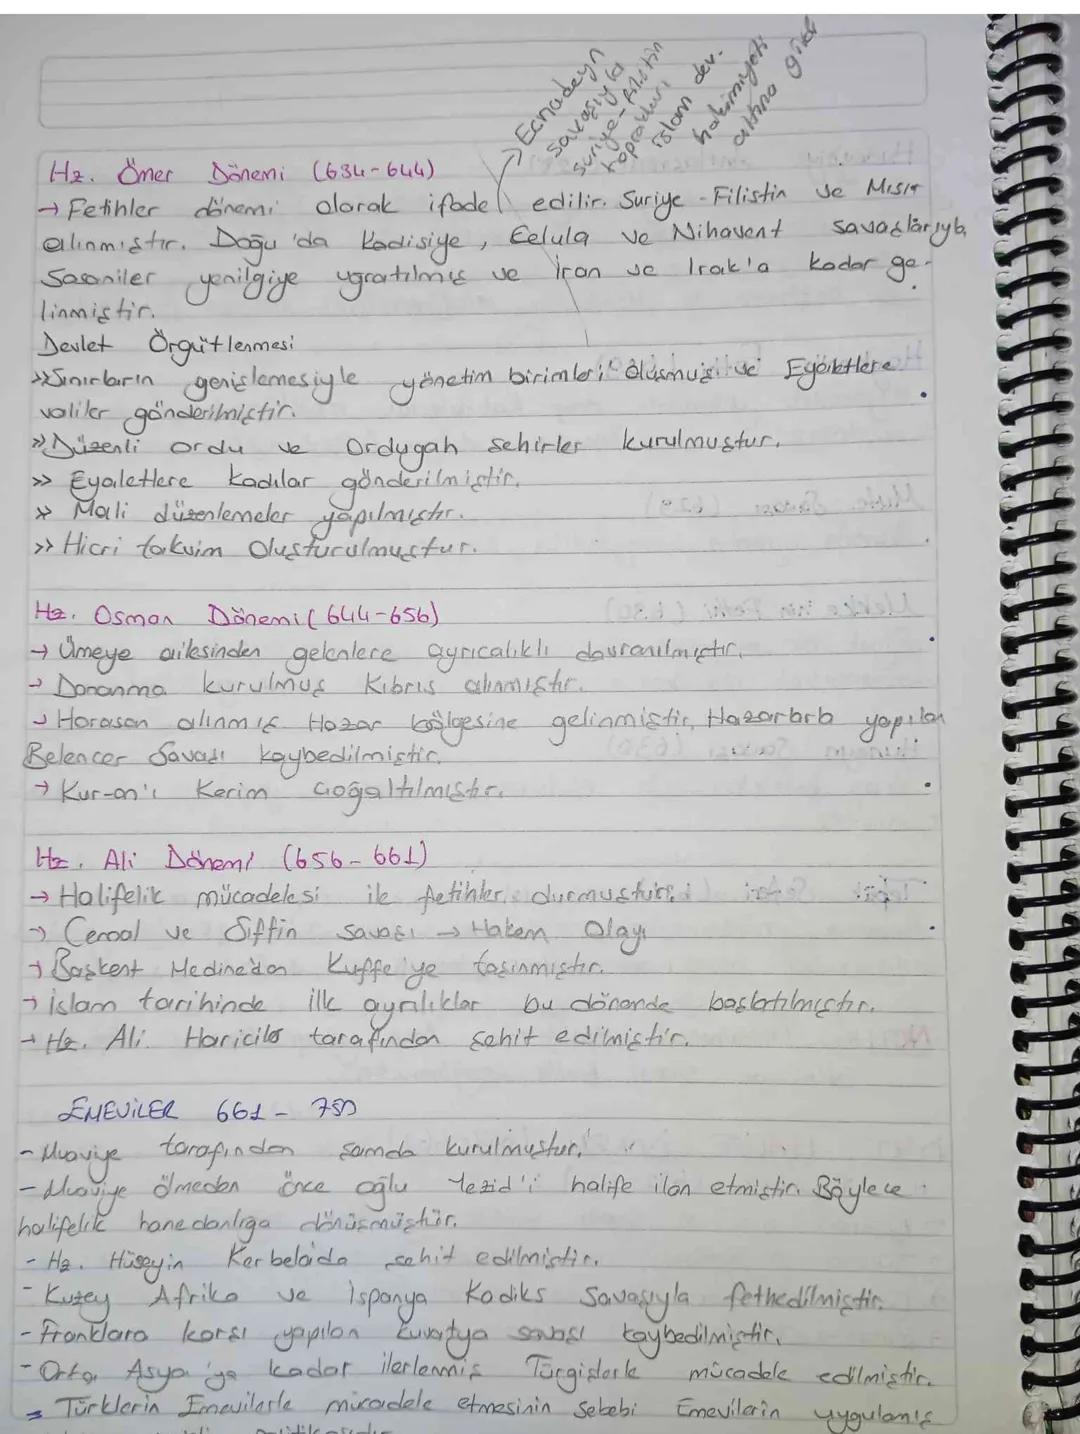 → Ecnadeyn
savaşıyla
Suriye-Filistin
toprakları
islam dev.
hakimiyeti
altına girdi
Hz. Ömer Dönemi (634-644)
→ Fetihler dönemi olarak ifade edilir. Suriye - Filistin ve Mısır
alınmıştır. Doğu'da Kadisiye, Celula ve Nihavent savaşlarıyla
Sasaniler yenilgiye uğratılmış ve İran ve Irak'a kadar ge-
linmiştir.
Devlet Örgütlenmesi
>> Sınırların genişlemesiyle yönetim birimleri oluşmuş ve Eyaletlere
valiler gönderilmiştir.
>> Düzenli ordu ve Ordugah şehirler kurulmuştur.
>> Eyaletlere kadılar gönderilmiştir.
>> Mali düzenlemeler yapılmıştır.
>> Hicri takvim Oluşturulmuştur.
Hz. Osman Dönemi (644-656)
→ Ümeye ailesinden gelenlere ayrıcalıklı davranılmıştır.
→ Donanma kurulmuş Kıbrıs alınmıştır.
→ Horasan alınmış Hazar bölgesine gelinmiştir, Hazarlarla yapılan
Belencer Savaşı kaybedilmiştir.
→ Kur-an'ı Kerim çoğaltılmıştır.
Hz. Ali Dönemi (656-661)
→ Halifelik mücadelesi ile fetihler durmuştur.
→ Cemal ve Sıffin savaşı → Hakem Olayı
→ Başkent Medine'den Kuffe'ye taşınmıştır.
→ İslam tarihinde ilk ayrılıklar bu dönemde başlatılmıştır.
→ Hz. Ali Hariciler tarafından şehit edilmiştir.
EMEVİLER 661 - 750
- Muaviye tarafından şamda kurulmuştur.
- Muaviye ölmeden önce oğlu Yezid'i halife ilan etmiştir. Böylece
halifelik hanedanlığa dönüşmüştür.
- Hz. Hüseyin Kerbelada şehit edilmiştir.
- Kuzey Afrika ve İspanya Kadiks Savaşıyla fethedilmiştir.
- Franklara karşı yapılan savaşı kaybedilmiştir.
- Orta Asya'ya kadar ilerlenmiş Türgişlerle mücadele edilmiştir.
- Türklerin Emevilerle mücadele etmesinin sebebi Emevilerin uygulamış